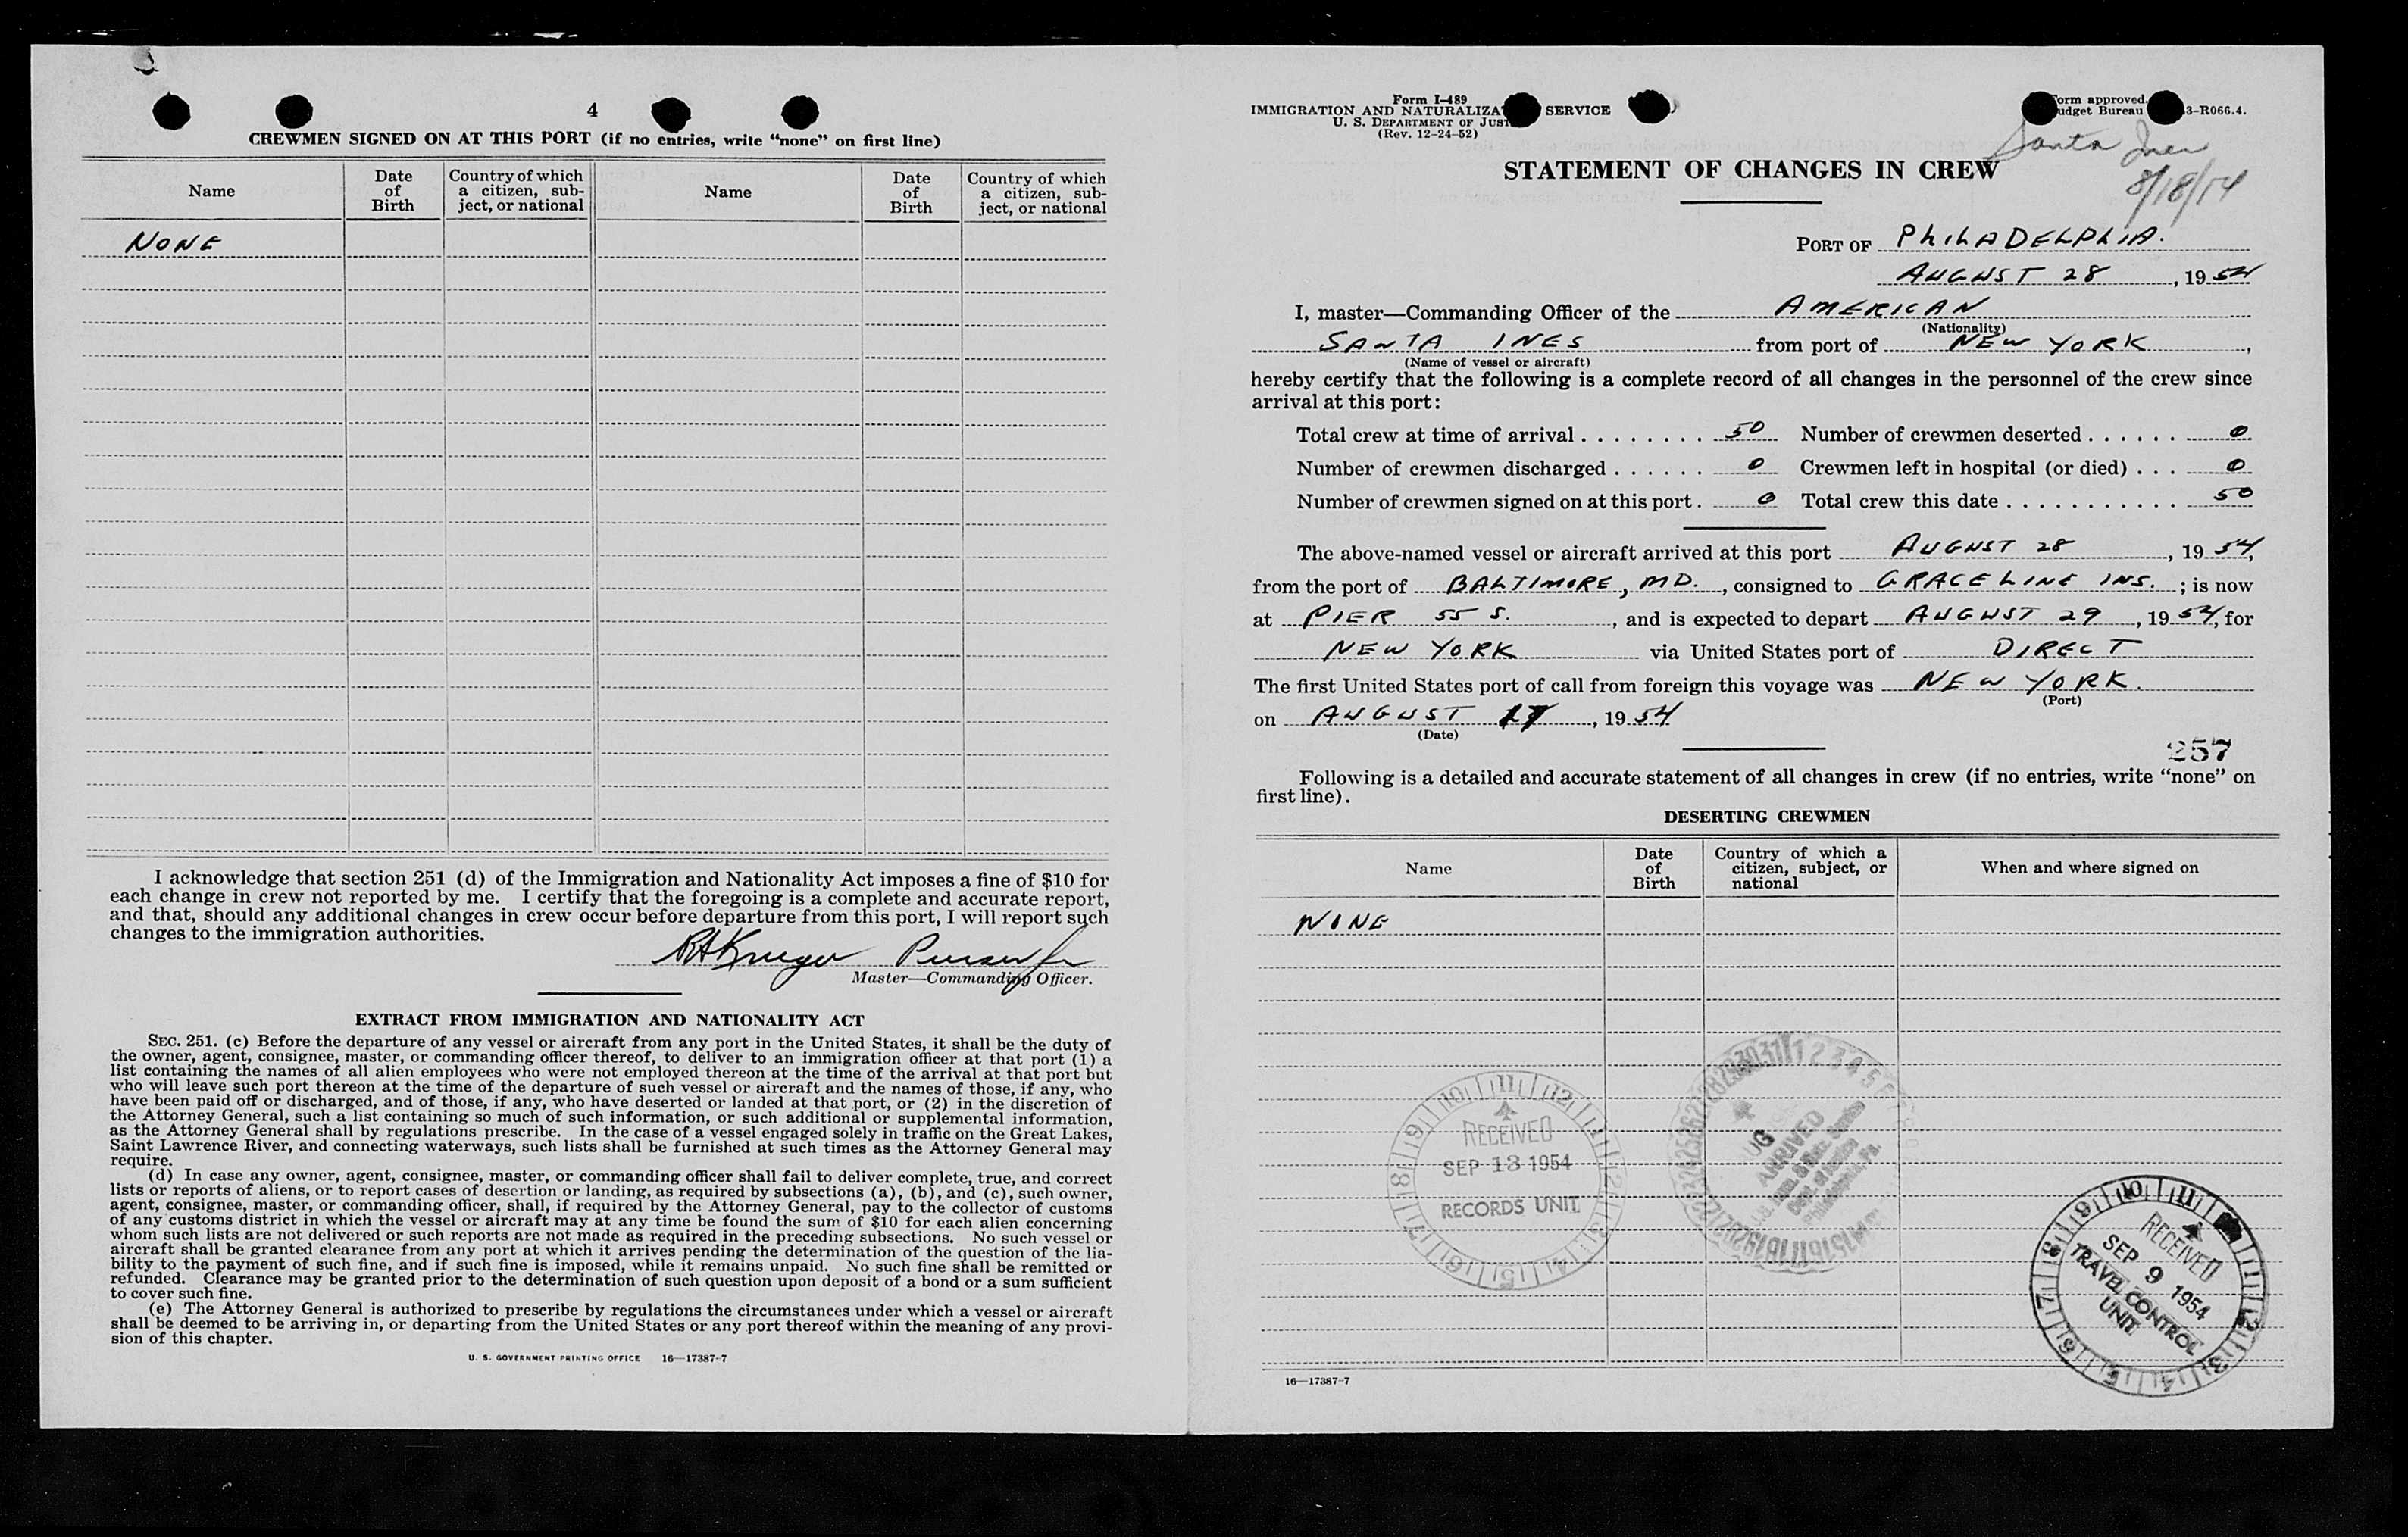 4
CREWMEN SIGNED ON AT THIS PORT (if no entries, write “none” on first line)
Name
Date of Birth
Country of which a citizen, sub-ject, or national
Name
Date of Birth
Country of which a citizen, sub-ject, or national
NONE
I acknowledge that section 251 (d) of the Immigration and Nationality Act imposes a fine of $10 for
each change in crew not reported by me. I certify that the foregoing is a complete and accurate report,
and that, should any additional changes in crew occur before departure from this port, I will report such
changes to the immigration authorities.
RHKrueger Purser
Master—Commanding Officer.
EXTRACT FROM IMMIGRATION AND NATIONALITY ACT
SEC. 251. (c) Before the departure of any vessel or aircraft from any port in the United States, it shall be the duty of
the owner, agent, consignee, master, or commanding officer thereof, to deliver to an immigration officer at that port (1) a
list containing the names of all alien employees who were not employed thereon at the time of the arrival at that port but
who will leave such port thereon at the time of the departure of such vessel or aircraft and the names of those, if any, who
have been paid off or discharged, and of those, if any, who have deserted or landed at that port, or (2) in the discretion of
the Attorney General, such a list containing so much of such information, or such additional or supplemental information,
as the Attorney General shall by regulations prescribe. In the case of a vessel engaged solely in traffic on the Great Lakes,
Saint Lawrence River, and connecting waterways, such lists shall be furnished at such times as the Attorney General may
require.
(d) In case any owner, agent, consignee, master, or commanding officer shall fail to deliver complete, true, and correct
lists or reports of aliens, or to report cases of desertion or landing, as required by subsections (a), (b), and (c), such owner,
agent, consignee, master, or commanding officer, shall, if required by the Attorney General, pay to the collector of customs
of any customs district in which the vessel or aircraft may at any time be found the sum of $10 for each alien concerning
whom such lists are not delivered or such reports are not made as required in the preceding subsections. No such vessel or
aircraft shall be granted clearance from any port at which it arrives pending the determination of the question of the lia-
bility to the payment of such fine, and if such fine is imposed, while it remains unpaid. No such fine shall be remitted or
refunded. Clearance may be granted prior to the determination of such question upon deposit of a bond or a sum sufficient
to cover such fine.
(e) The Attorney General is authorized to prescribe by regulations the circumstances under which a vessel or aircraft
shall be deemed to be arriving in, or departing from the United States or any port thereof within the meaning of any provi-
sion of this chapter.
U. S. GOVERNMENT PRINTING OFFICE 16—17387-7
Form I-489
IMMIGRATION AND NATURALIZA SERVICE
U. S. DEPARTMENT OF JUST
(Rev. 12-24-52)
orm approved.
udget Bureau 3-R066.4.
Santa Ines
8/18/54
STATEMENT OF CHANGES IN CREW
PORT OF PHILADELPHIA.
AUGUST 28, 1954
I, master—Commanding Officer of the AMERICAN
(Nationality)
SANTA INES from port of NEW YORK,
(Name of vessel or aircraft)
hereby certify that the following is a complete record of all changes in the personnel of the crew since
arrival at this port:
Total crew at time of arrival . . . . . . . . 50 Number of crewmen deserted . . . . . . 0
Number of crewmen discharged . . . . . . 0 Crewmen left in hospital (or died) . . . 0
Number of crewmen signed on at this port . 0 Total crew this date . . . . . . . . . . . 50
The above-named vessel or aircraft arrived at this port AUGUST 28, 1954,
from the port of BALTIMORE, MD., consigned to GRACE LINE INS. ; is now
at PIER 55 S., and is expected to depart AUGUST 29, 1954, for
NEW YORK via United States port of DIRECT
The first United States port of call from foreign this voyage was NEW YORK.
(Port)
on AUGUST 17, 1954
(Date)
257
Following is a detailed and accurate statement of all changes in crew (if no entries, write “none” on
first line).
DESERTING CREWMEN
Name
Date of Birth
Country of which a citizen, subject, or national
When and where signed on
NONE
RECEIVED
SEP 13 1954
RECORDS UNIT
UG
ARRIVED
Philadelphia, Pa.
RECEIVED
SEP 9 1954
TRAVEL CONTROL
UNIT
16—17387-7